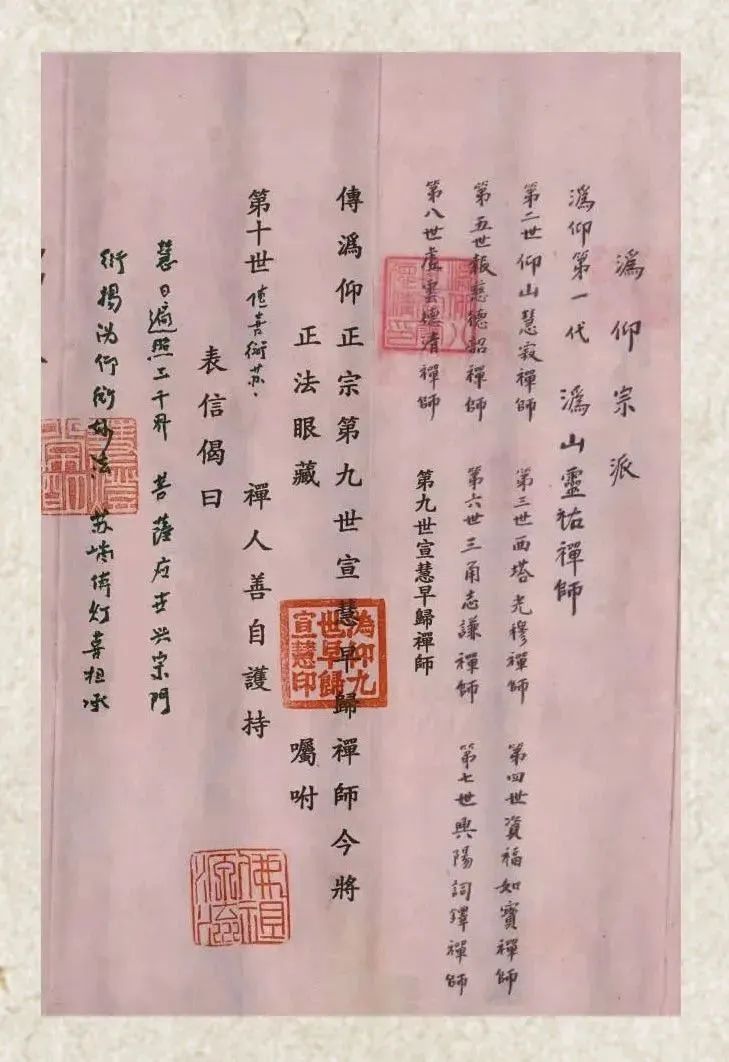 潙仰宗派
潙仰第一代 潙山靈祐禪師
第二世仰山慧寂禪師 第三世西塔光穆禪師 第四世資福如寶禪師
第五世報慈德韶禪師 第六世三角志謙禪師 第七世興陽詞鐸禪師
第八世虛雲德清禪師 第九世宣慧早歸禪師
傳潙仰正宗第九世宣慧早歸禪師今將
正法眼藏 囑咐
潙仰九世早歸宣慧印
第十世 禪人善自護持
表信偈曰
慧日遍照三千界 菩薩应世兴宗門
衍揚沩仰衍妙法 传灯喜担承
佛祖